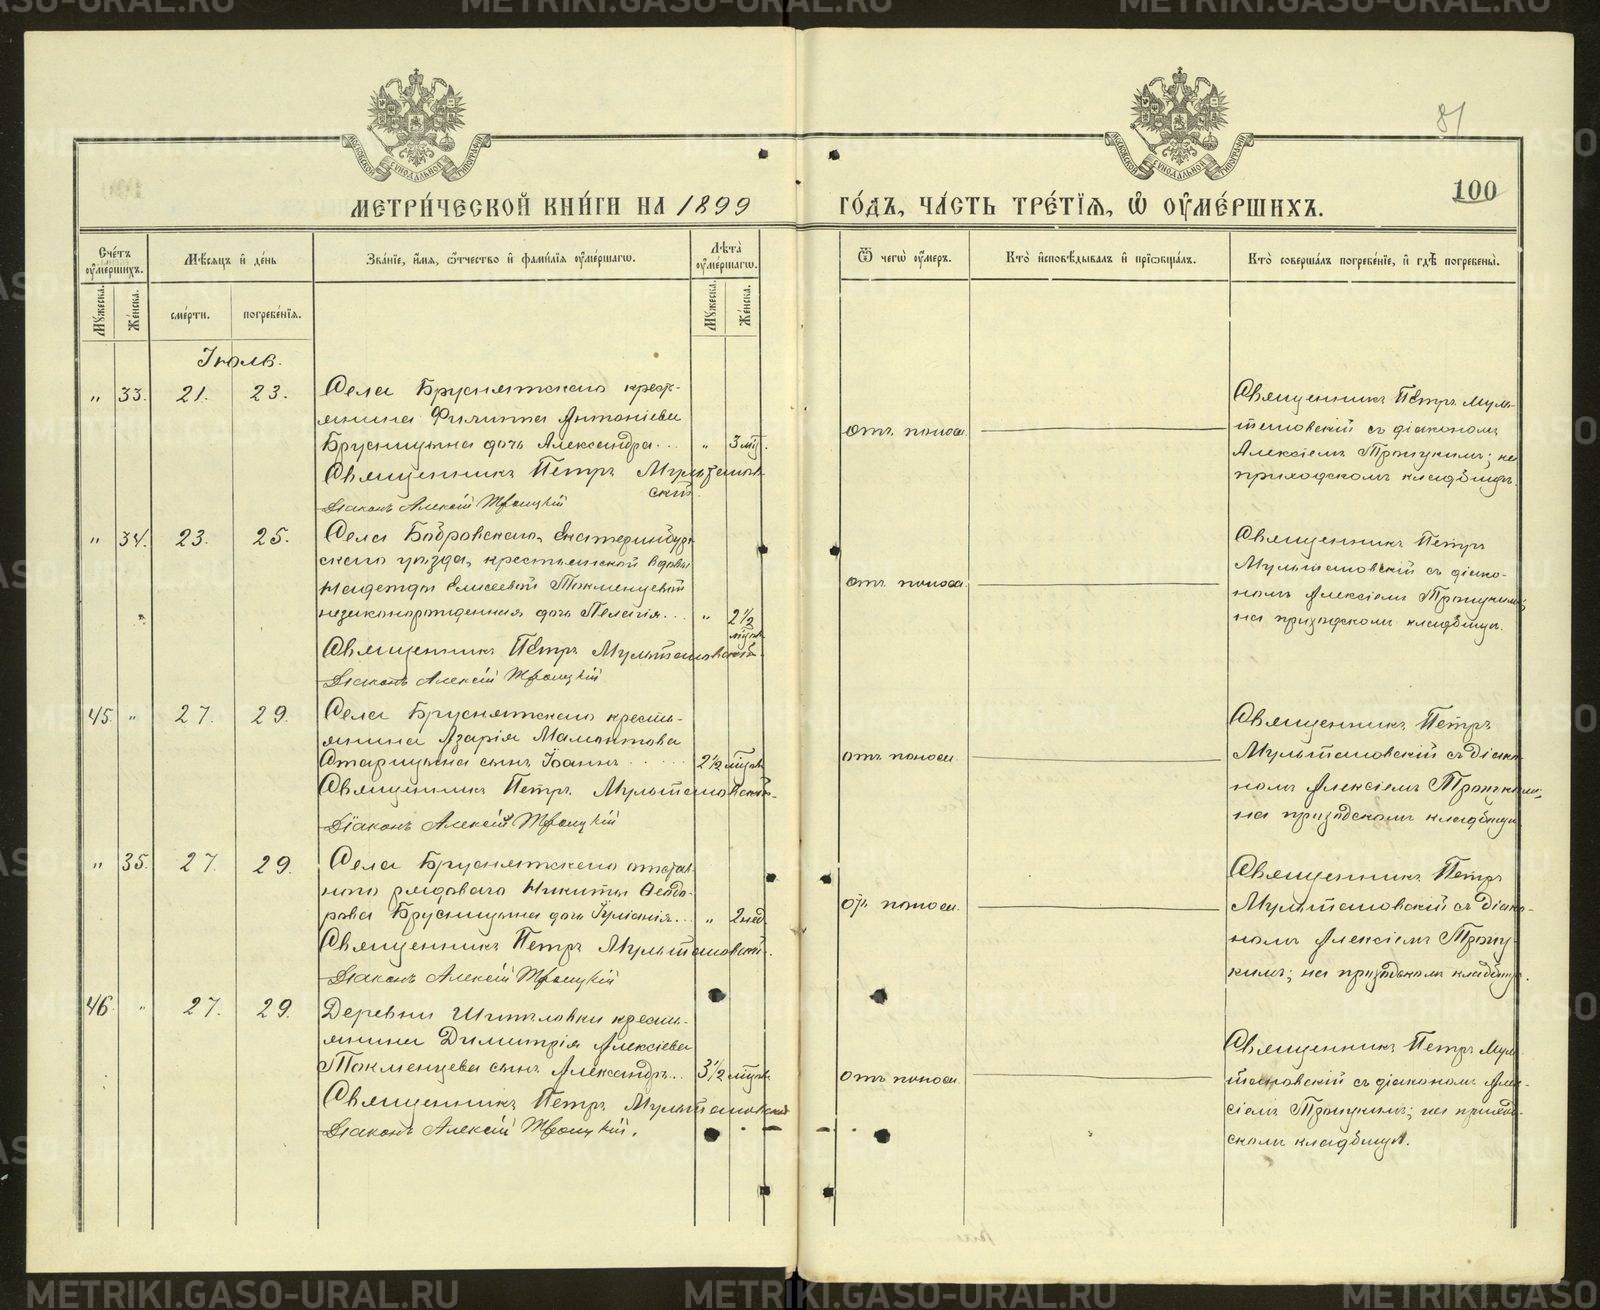 81
100
МЕТРИ́ЧЕСКОЙ КНИ́ГИ НА 1899 ГО́ДЪ, ЧА́СТЬ ТРЕ́ТІѦ, Ѡ ОУ҆МЕ́РШИХЪ.
Сче́тъ оу҆ме́ршихъ.
Мꙋ́жеска.
Же́нска.
Мѣ́сѧцъ и҆ де́нь
сме́рти.
погребе́нїѧ.
Зва́нїе, и҆́мѧ, ѻ҆́тчество и҆ фами́лїѧ оу҆ме́ршагѡ.
Лѣ́та оу҆ме́ршагѡ.
Мꙋ́жеска.
Же́нска.
Ѿ чегѡ̀ оу҆́меръ.
Кто̀ и҆сповѣ́дывалъ и҆ прїѻбща́лъ.
Кто̀ соверша́лъ погребе́нїе, и҆ гдѣ̀ погребены̀.
Іюль.
" 33. 21. 23.
Села Бруснятскаго крест-
янина Филиппа Антоніева
Брусницына дочь Александра... " 3 мѣс.
Священникъ Петръ Мультановскій
Діаконъ Алексій Троицкій
отъ поноса.
Священникъ Петръ Муль-
тановскій съ діакономъ
Алексіемъ Троицкимъ; на
приходскомъ кладбищѣ.
" 34. 23. 25.
Села Бобровскаго, Екатеринбург-
скаго уѣзда, крестьянской вдовы
Надежды Елисеевой Токменцевой
незаконорожденная дочь Пелагія... " 2½ мѣсяц.
Священникъ Петръ Мультановскій.
Діаконъ Алексій Троицкій
отъ поноса
Священникъ Петръ
Мультановскій съ діако-
номъ Алексіемъ Троицкимъ;
на приходскомъ кладбищѣ.
45. " 27. 29.
Села Бруснятскаго кресть-
янина Азарія Мамонтова
Старицына сынъ Іоаннъ 2½ мѣсяц.
Священникъ Петръ Мультановскій.
Діаконъ Алексій Троицкій
отъ поноса.
Священникъ Петръ
Мультановскій съ діако-
номъ Алексіемъ Троицкимъ;
на приходскомъ кладбищѣ.
" 35. 27. 29.
Села Бруснятскаго отстав-
ного рядоваго Никиты Ѳедо-
рова Брусницына дочь Іуліанія... " 2 нед.
Священникъ Петръ Мультановскій.
Діаконъ Алексій Троицкій
отъ поноса.
Священникъ Петръ
Мультановскій съ діако-
номъ Алексіемъ Троиц-
кимъ; на приходскомъ кладбищѣ.
46. " 27. 29.
Деревни Шипловки кресть-
янина Димитрія Алексіева
Токменцева сынъ Александръ... 3½ мѣсяц.
Священникъ Петръ Мультановскій
Діаконъ Алексій Троицкій.
отъ поноса.
Священникъ Петръ Муль-
тановскій съ діакономъ Алек-
сіемъ Троицкимъ; на приход-
скомъ кладбищѣ.
METRIKI.GASO-URAL.RU